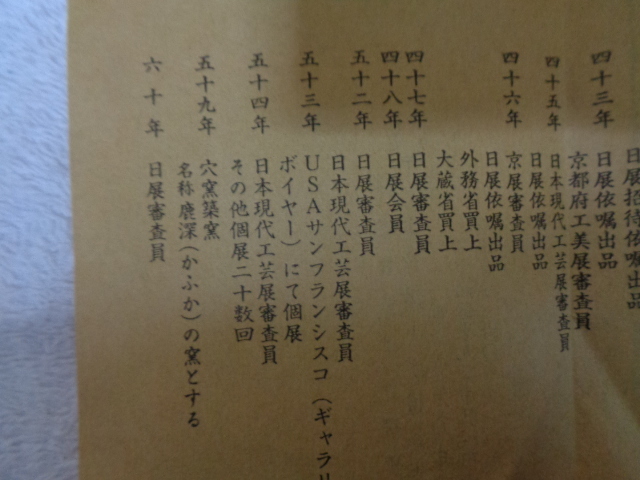 日展招待依嘱出品
四十三年 日展依嘱出品
京都府工美展審査員
四十五年 日本現代工芸展審査員
日展依嘱出品
四十六年 京展審査員
日展依嘱出品
外務省買上
大蔵省買上
四十七年 日展審査員
四十八年 日展会員
五十二年 日展審査員
日本現代工芸展審査員
五十三年 USAサンフランシスコ（ギャラリ
ボイヤー）にて個展
五十四年 日本現代工芸展審査員
その他個展二十数回
五十九年 穴窯築窯
名称鹿深（かふか）の窯とする
六十年 日展審査員